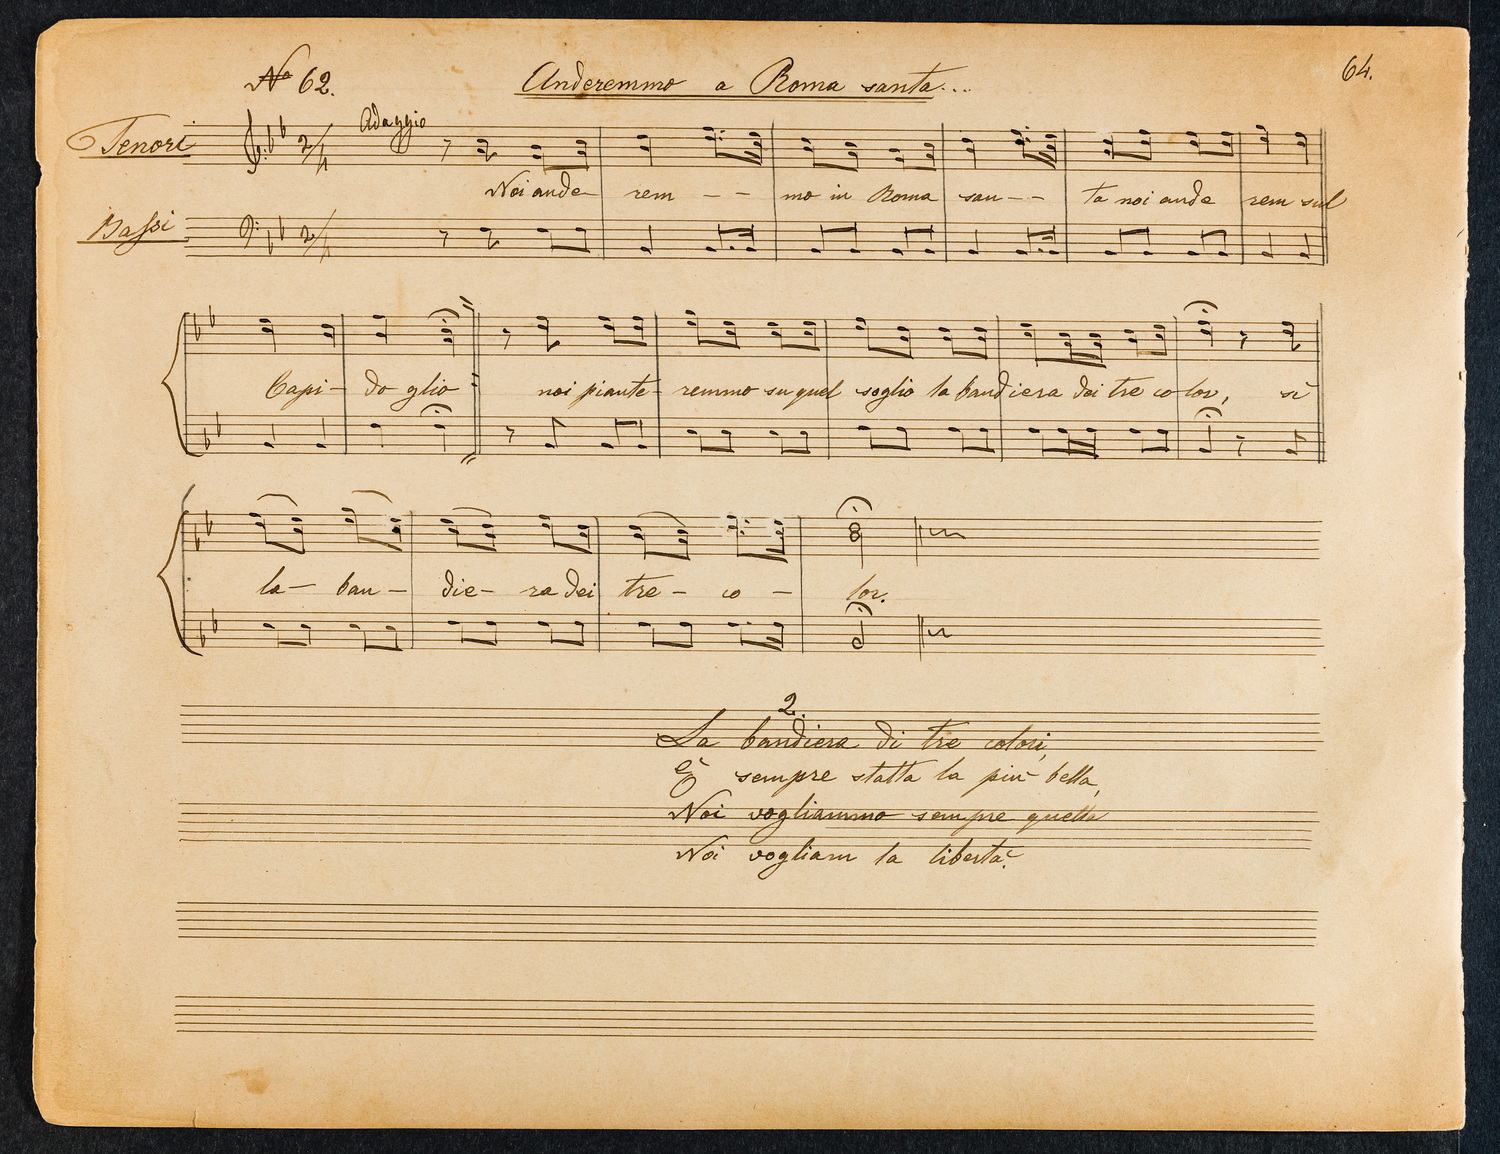 No 62. Anderemmo a Roma santa... 64.
Adaggio
Tenori
2/4
Noi ande- rem - - mo in Roma san - - ta noi ande rem sul
Bassi
2/4
Capi- do glio noi piante- remmo su quel soglio la bandiera dei tre co lor, si
la- ban- die- ra dei tre- co - lor.
2.
La bandiera di tre colori,
È sempre statta la più bella,
Noi vogliammo sempre quella
Noi vogliam la libertà.